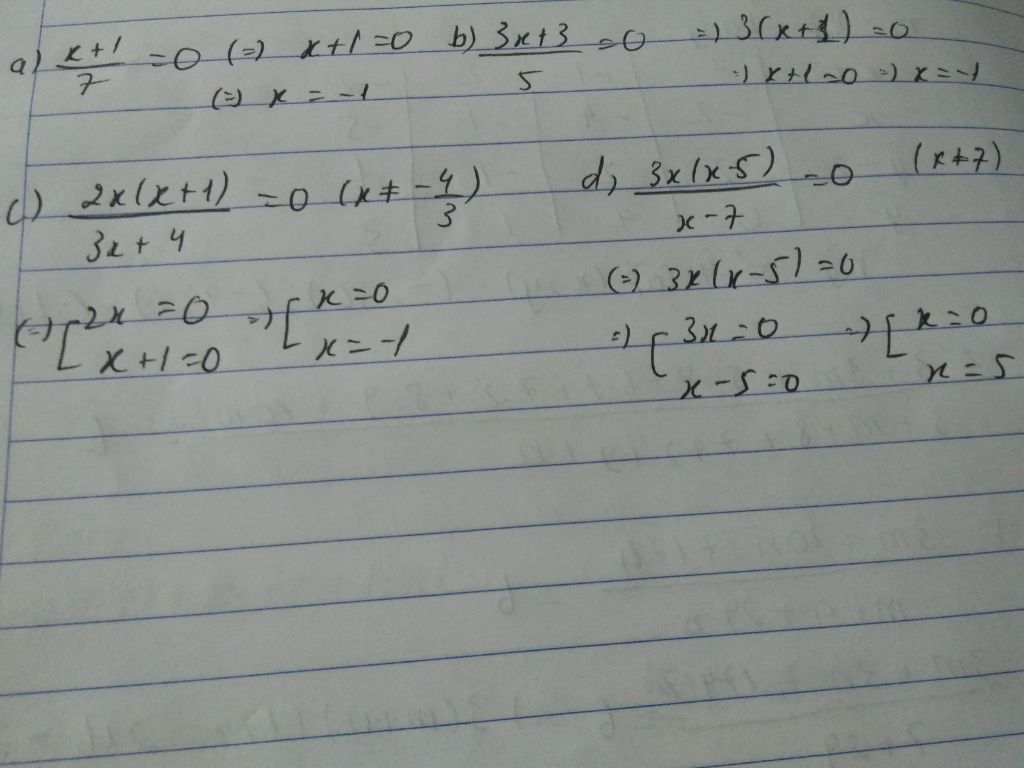 a) (x+1)/7 = 0 (=) x+1 = 0
(=) x = -1
b) (3x+3)/5 = 0 =) 3(x+1) = 0
=) x+1 = 0 =) x = -1
c) 2x(x+1)/(3x+4) = 0 (x ≠ -4/3)
(=) [ 2x = 0 =) [ x = 0
x+1 = 0 x = -1
d, 3x(x-5)/(x-7) = 0 (x ≠ 7)
(=) 3x(x-5) = 0
=) [ 3x = 0 =) [ x = 0
x-5 = 0 x = 5